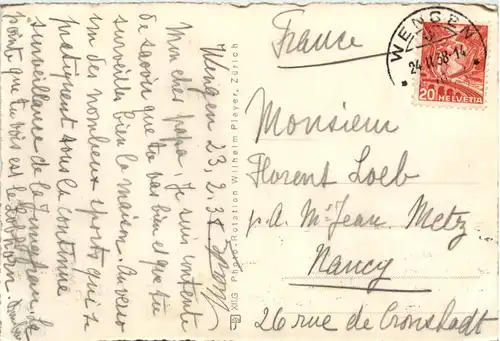 Wengen 23.2.38
Mon cher papa. Je suis contente
de savoir que tu vas bien et que tu
surveilles bien la maison.
un des nombreux sports qui se
pratiquent sous la continue
surveillance de la Jungfrau. La
pointe que tu vois est le
XIIG Photo-Rotation Wilhelm Pleyer, Zürich
France
WENGEN
24.II.38-14
20 HELVETIA
Monsieur
Florent Loeb
p.a. Mr Jean Metz
Nancy
26 rue de Cronstadt